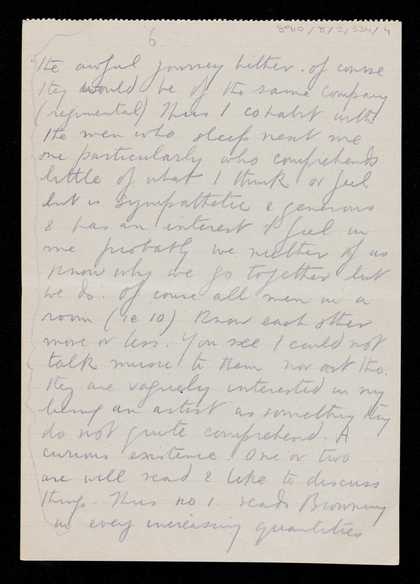 6
8040/8/2/330/4
the awful journey hither. of course
they would be of the same company
(regimental) Thus I cohabit with
the men who sleep near me
one particularly who comprehends
little of what I think or feel
but is sympathetic & generous
& has an interest I feel in
me probably we neither of us
know why we go together but
we do. Of course all men in a
room (ie 10) know each other
more or less. You see I could not
talk music to them nor art tho.
they are vaguely interested in my
being an artist as something they
do not quite comprehend. A
curious existence One or two
are well read & like to discuss
things. Thus no 1 reads Browning
in every increasing quantities